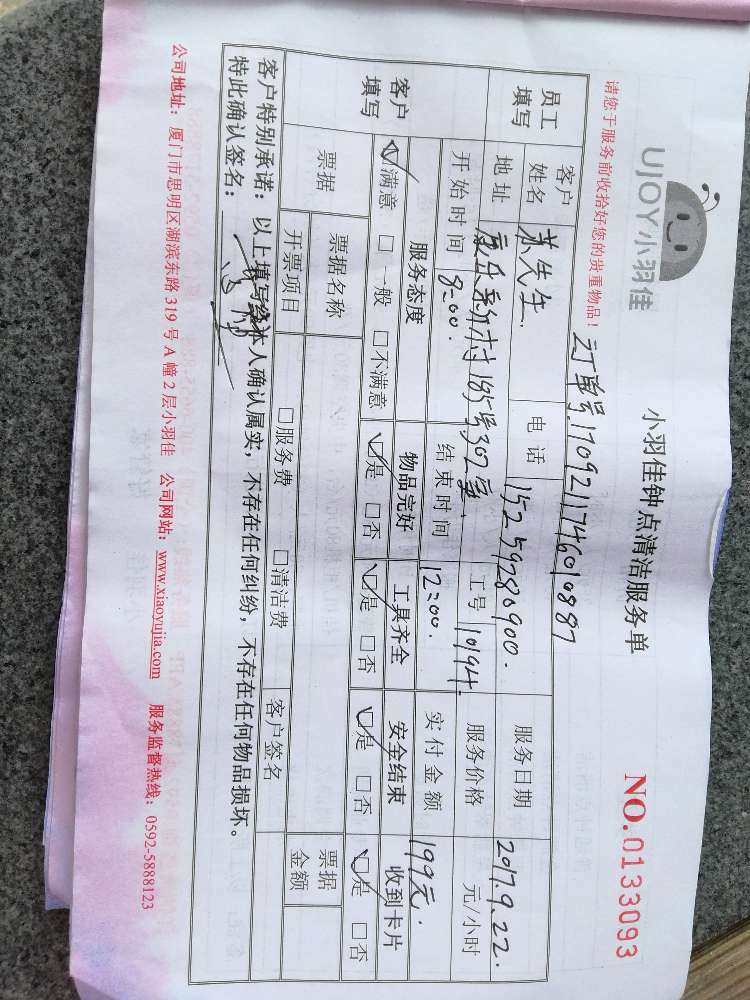 UJOY小羽佳
小羽佳钟点清洁服务单
NO.0133093
请您于服务前收拾好您的贵重物品！
订单号.1709211746010887
员工填写
客户姓名 苏先生. 电话 15259280900. 服务日期 2017.9.22.
地址 康乐新村185号302室. 工号 10194. 服务价格 元/小时
客户填写
开始时间 8:00. 结束时间 12:00. 实付金额 199元.
服务态度 物品完好 工具齐全 安全结束 收到卡片
☑满意 □一般 □不满意 ☑是 □否 ☑是 □否 ☑是 □否 ☑是 □否
票据 票据名称 客户签名 票据金额
开票项目 □服务费 □清洁费
客户特别承诺：以上填写经本人确认属实，不存在任何纠纷，不存在任何物品损坏。
特此确认签名：
公司地址：厦门市思明区湖滨东路319号A幢2层小羽佳 公司网站：www.xiaoyujia.com 服务监督热线：0592-5888123